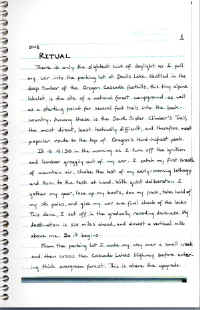 1
2018
RITUAL
There is only the slightest hint of daylight as I pull
my car into the parking lot at Devils Lake. Nestled in the
deep timber of the Oregon Cascade foothills, this tiny alpine
lakelet is the site of a national forest campground as well
as a starting point for several foot trails into the back-
country. Among these is the South Sister Climber's Trail,
the most direct, least technically difficult, and therefore most
popular route to the top of Oregon's third-highest peak.
It is 4:30 in the morning as I turn off the ignition
and lumber groggily out of my car. I catch my first breath
of mountain air, shake the last of my early-morning lethargy
and turn to the task at hand. With quiet deliberation I
gather my gear, lace up my boots, don my pack, take hold of
my trek poles, and give my car one final check of the locks.
This done, I set off in the gradually receding darkness. My
destination is six miles ahead, and almost a vertical mile
above me. So it begins.
From the parking lot I make my way over a small creek
and then cross the Cascade Lakes Highway before enter-
ing thick evergreen forest. This is where the upgrade